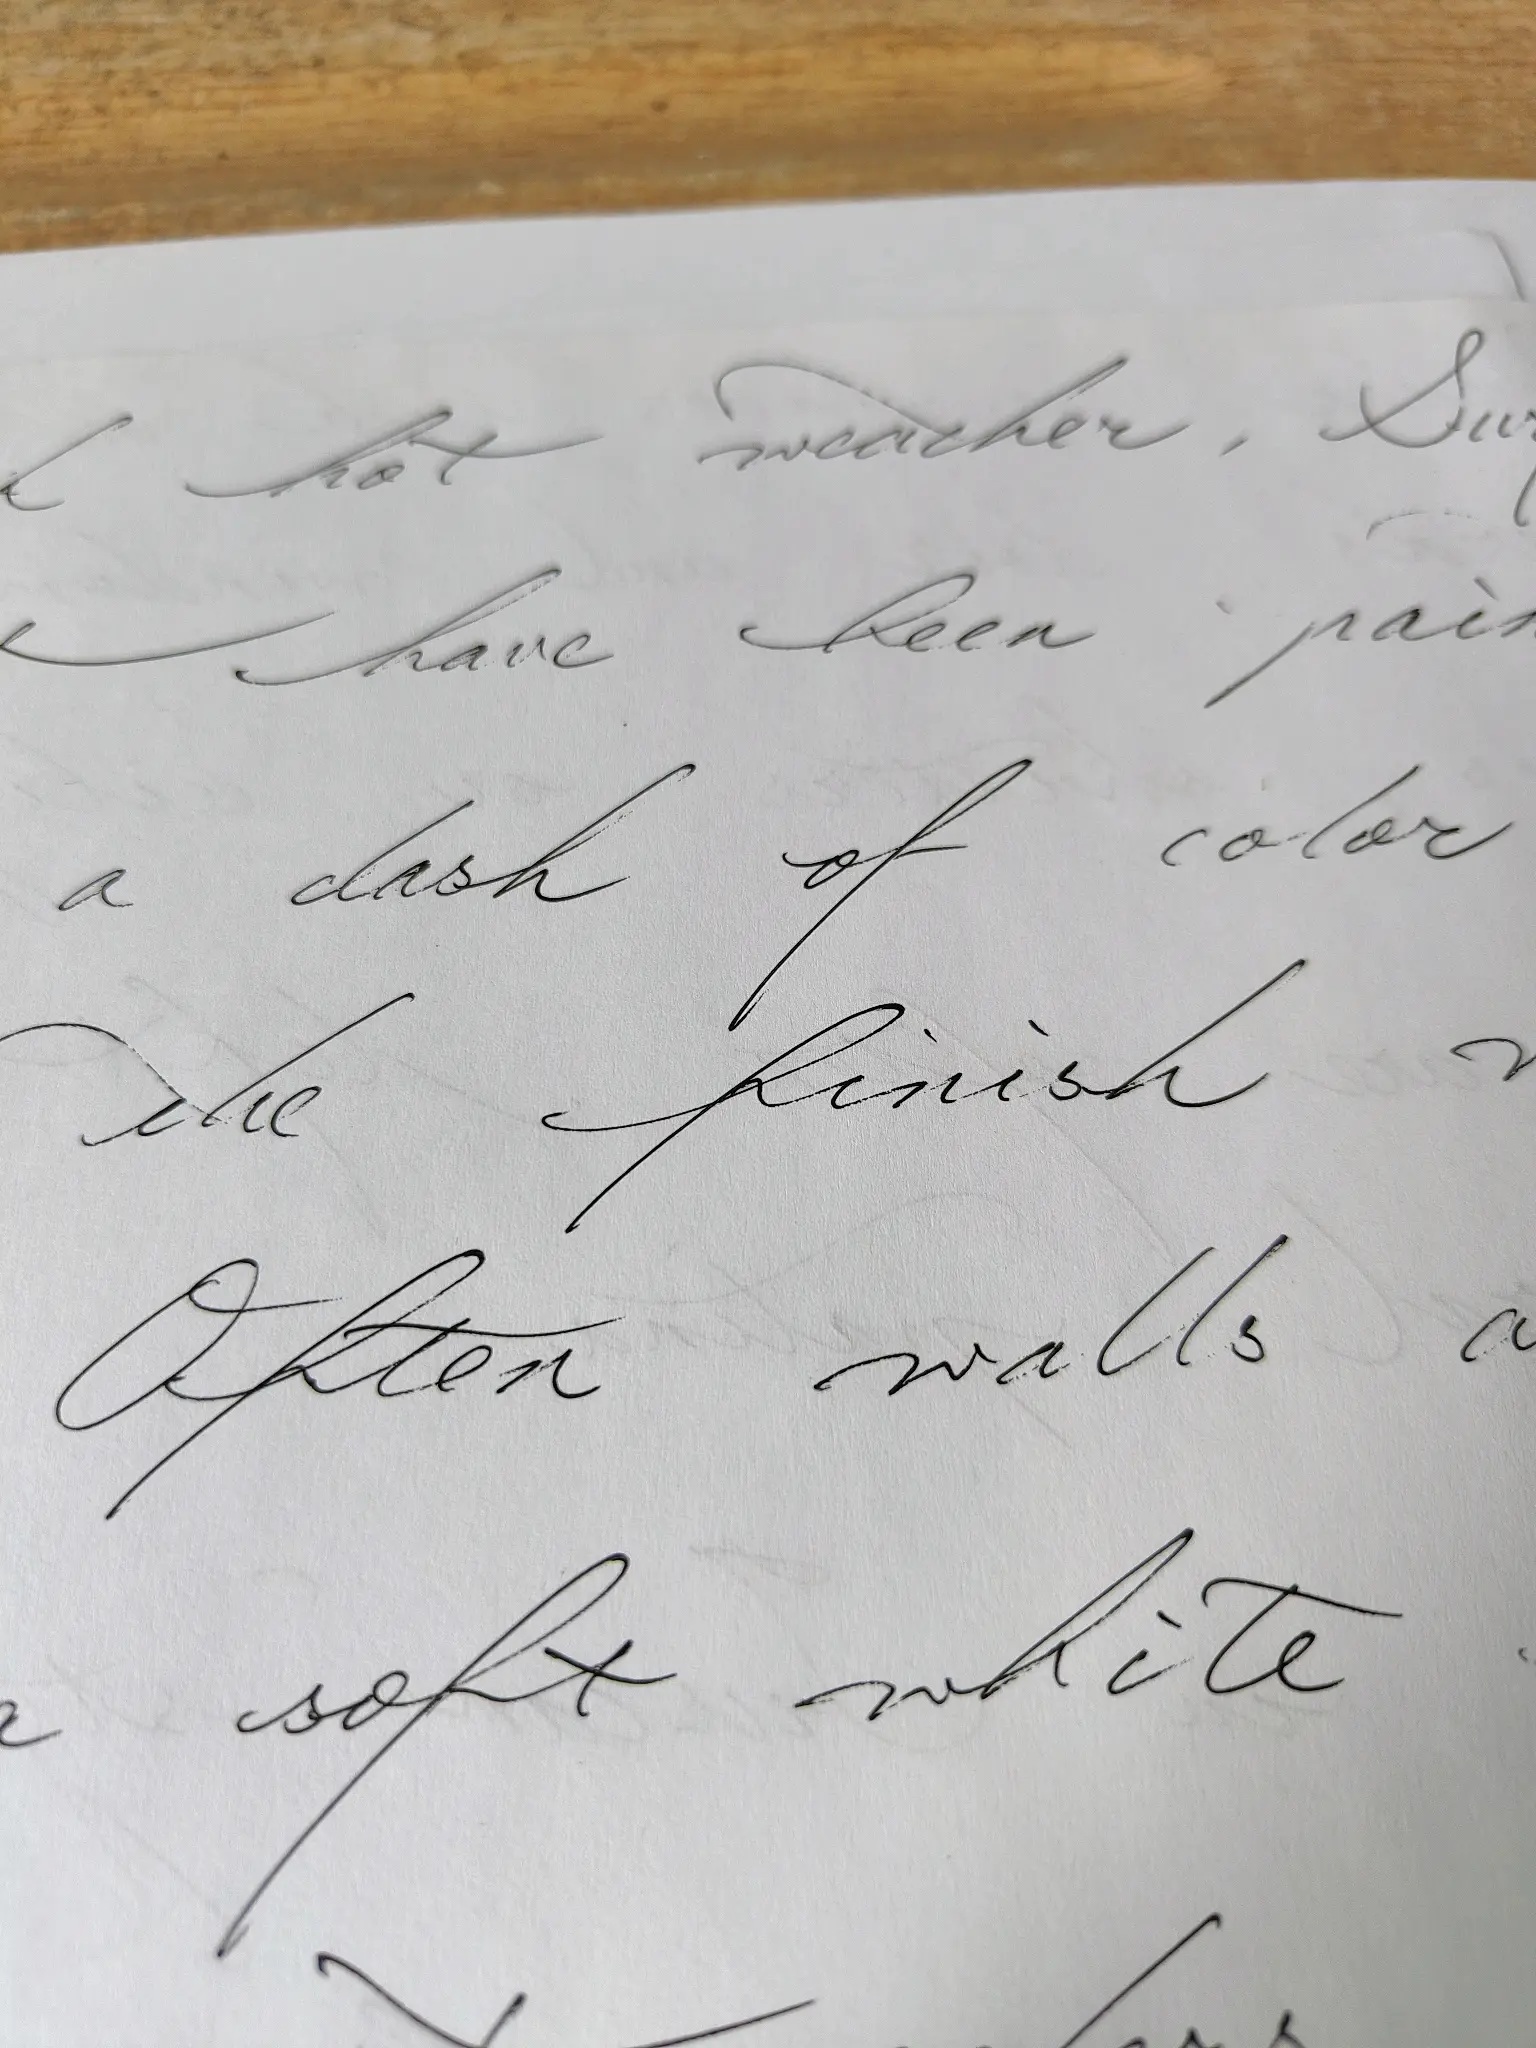 hot weather. Sur
have been pain
a dash of color
The finish
Often walls a
a soft white